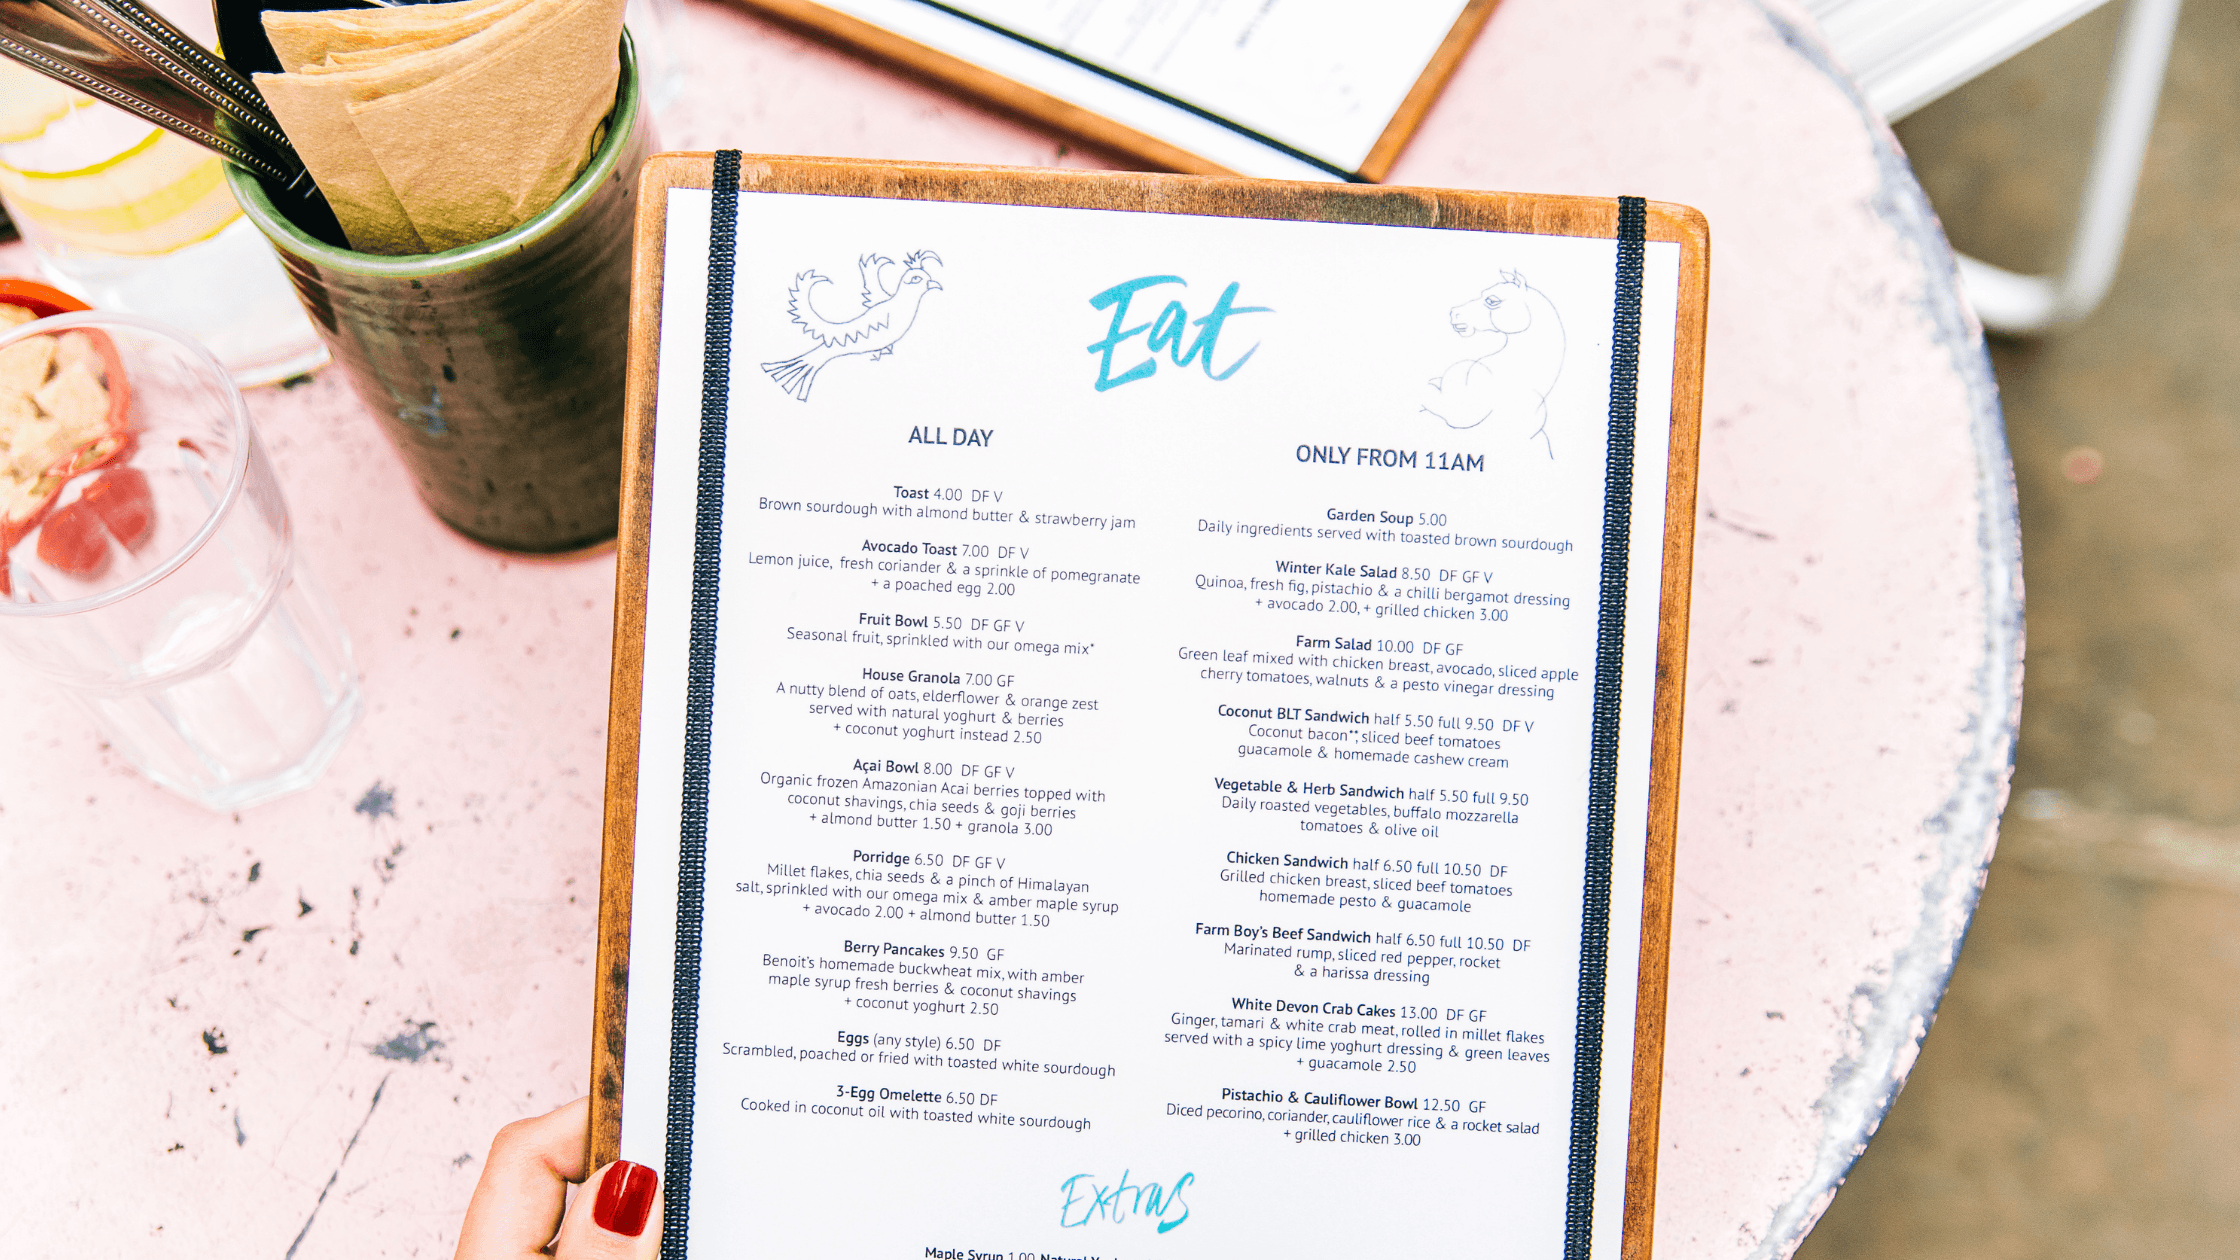 Eat
ALL DAY
Toast 4.00 DF V
Brown sourdough with almond butter & strawberry jam
Avocado Toast 7.00 DF V
Lemon juice, fresh coriander & a sprinkle of pomegranate
+ a poached egg 2.00
Fruit Bowl 5.50 DF GF V
Seasonal fruit, sprinkled with our omega mix*
House Granola 7.00 GF
A nutty blend of oats, elderflower & orange zest
served with natural yoghurt & berries
+ coconut yoghurt instead 2.50
Açai Bowl 8.00 DF GF V
Organic frozen Amazonian Acai berries topped with
coconut shavings, chia seeds & goji berries
+ almond butter 1.50 + granola 3.00
Porridge 6.50 DF GF V
Millet flakes, chia seeds & a pinch of Himalayan
salt, sprinkled with our omega mix & amber maple syrup
+ avocado 2.00 + almond butter 1.50
Berry Pancakes 9.50 GF
Benoit's homemade buckwheat mix, with amber
maple syrup fresh berries & coconut shavings
+ coconut yoghurt 2.50
Eggs (any style) 6.50 DF
Scrambled, poached or fried with toasted white sourdough
3-Egg Omelette 6.50 DF
Cooked in coconut oil with toasted white sourdough
ONLY FROM 11AM
Garden Soup 5.00
Daily ingredients served with toasted brown sourdough
Winter Kale Salad 8.50 DF GF V
Quinoa, fresh fig, pistachio & a chilli bergamot dressing
+ avocado 2.00, + grilled chicken 3.00
Farm Salad 10.00 DF GF
Green leaf mixed with chicken breast, avocado, sliced apple
cherry tomatoes, walnuts & a pesto vinegar dressing
Coconut BLT Sandwich half 5.50 full 9.50 DF V
Coconut bacon**, sliced beef tomatoes
guacamole & homemade cashew cream
Vegetable & Herb Sandwich half 5.50 full 9.50
Daily roasted vegetables, buffalo mozzarella
tomatoes & olive oil
Chicken Sandwich half 6.50 full 10.50 DF
Grilled chicken breast, sliced beef tomatoes
homemade pesto & guacamole
Farm Boy's Beef Sandwich half 6.50 full 10.50 DF
Marinated rump, sliced red pepper, rocket
& a harissa dressing
White Devon Crab Cakes 13.00 DF GF
Ginger, tamari & white crab meat, rolled in millet flakes
served with a spicy lime yoghurt dressing & green leaves
+ guacamole 2.50
Pistachio & Cauliflower Bowl 12.50 GF
Diced pecorino, coriander, cauliflower rice & a rocket salad
+ grilled chicken 3.00
Extras
Maple Syrup 1.00 Natural